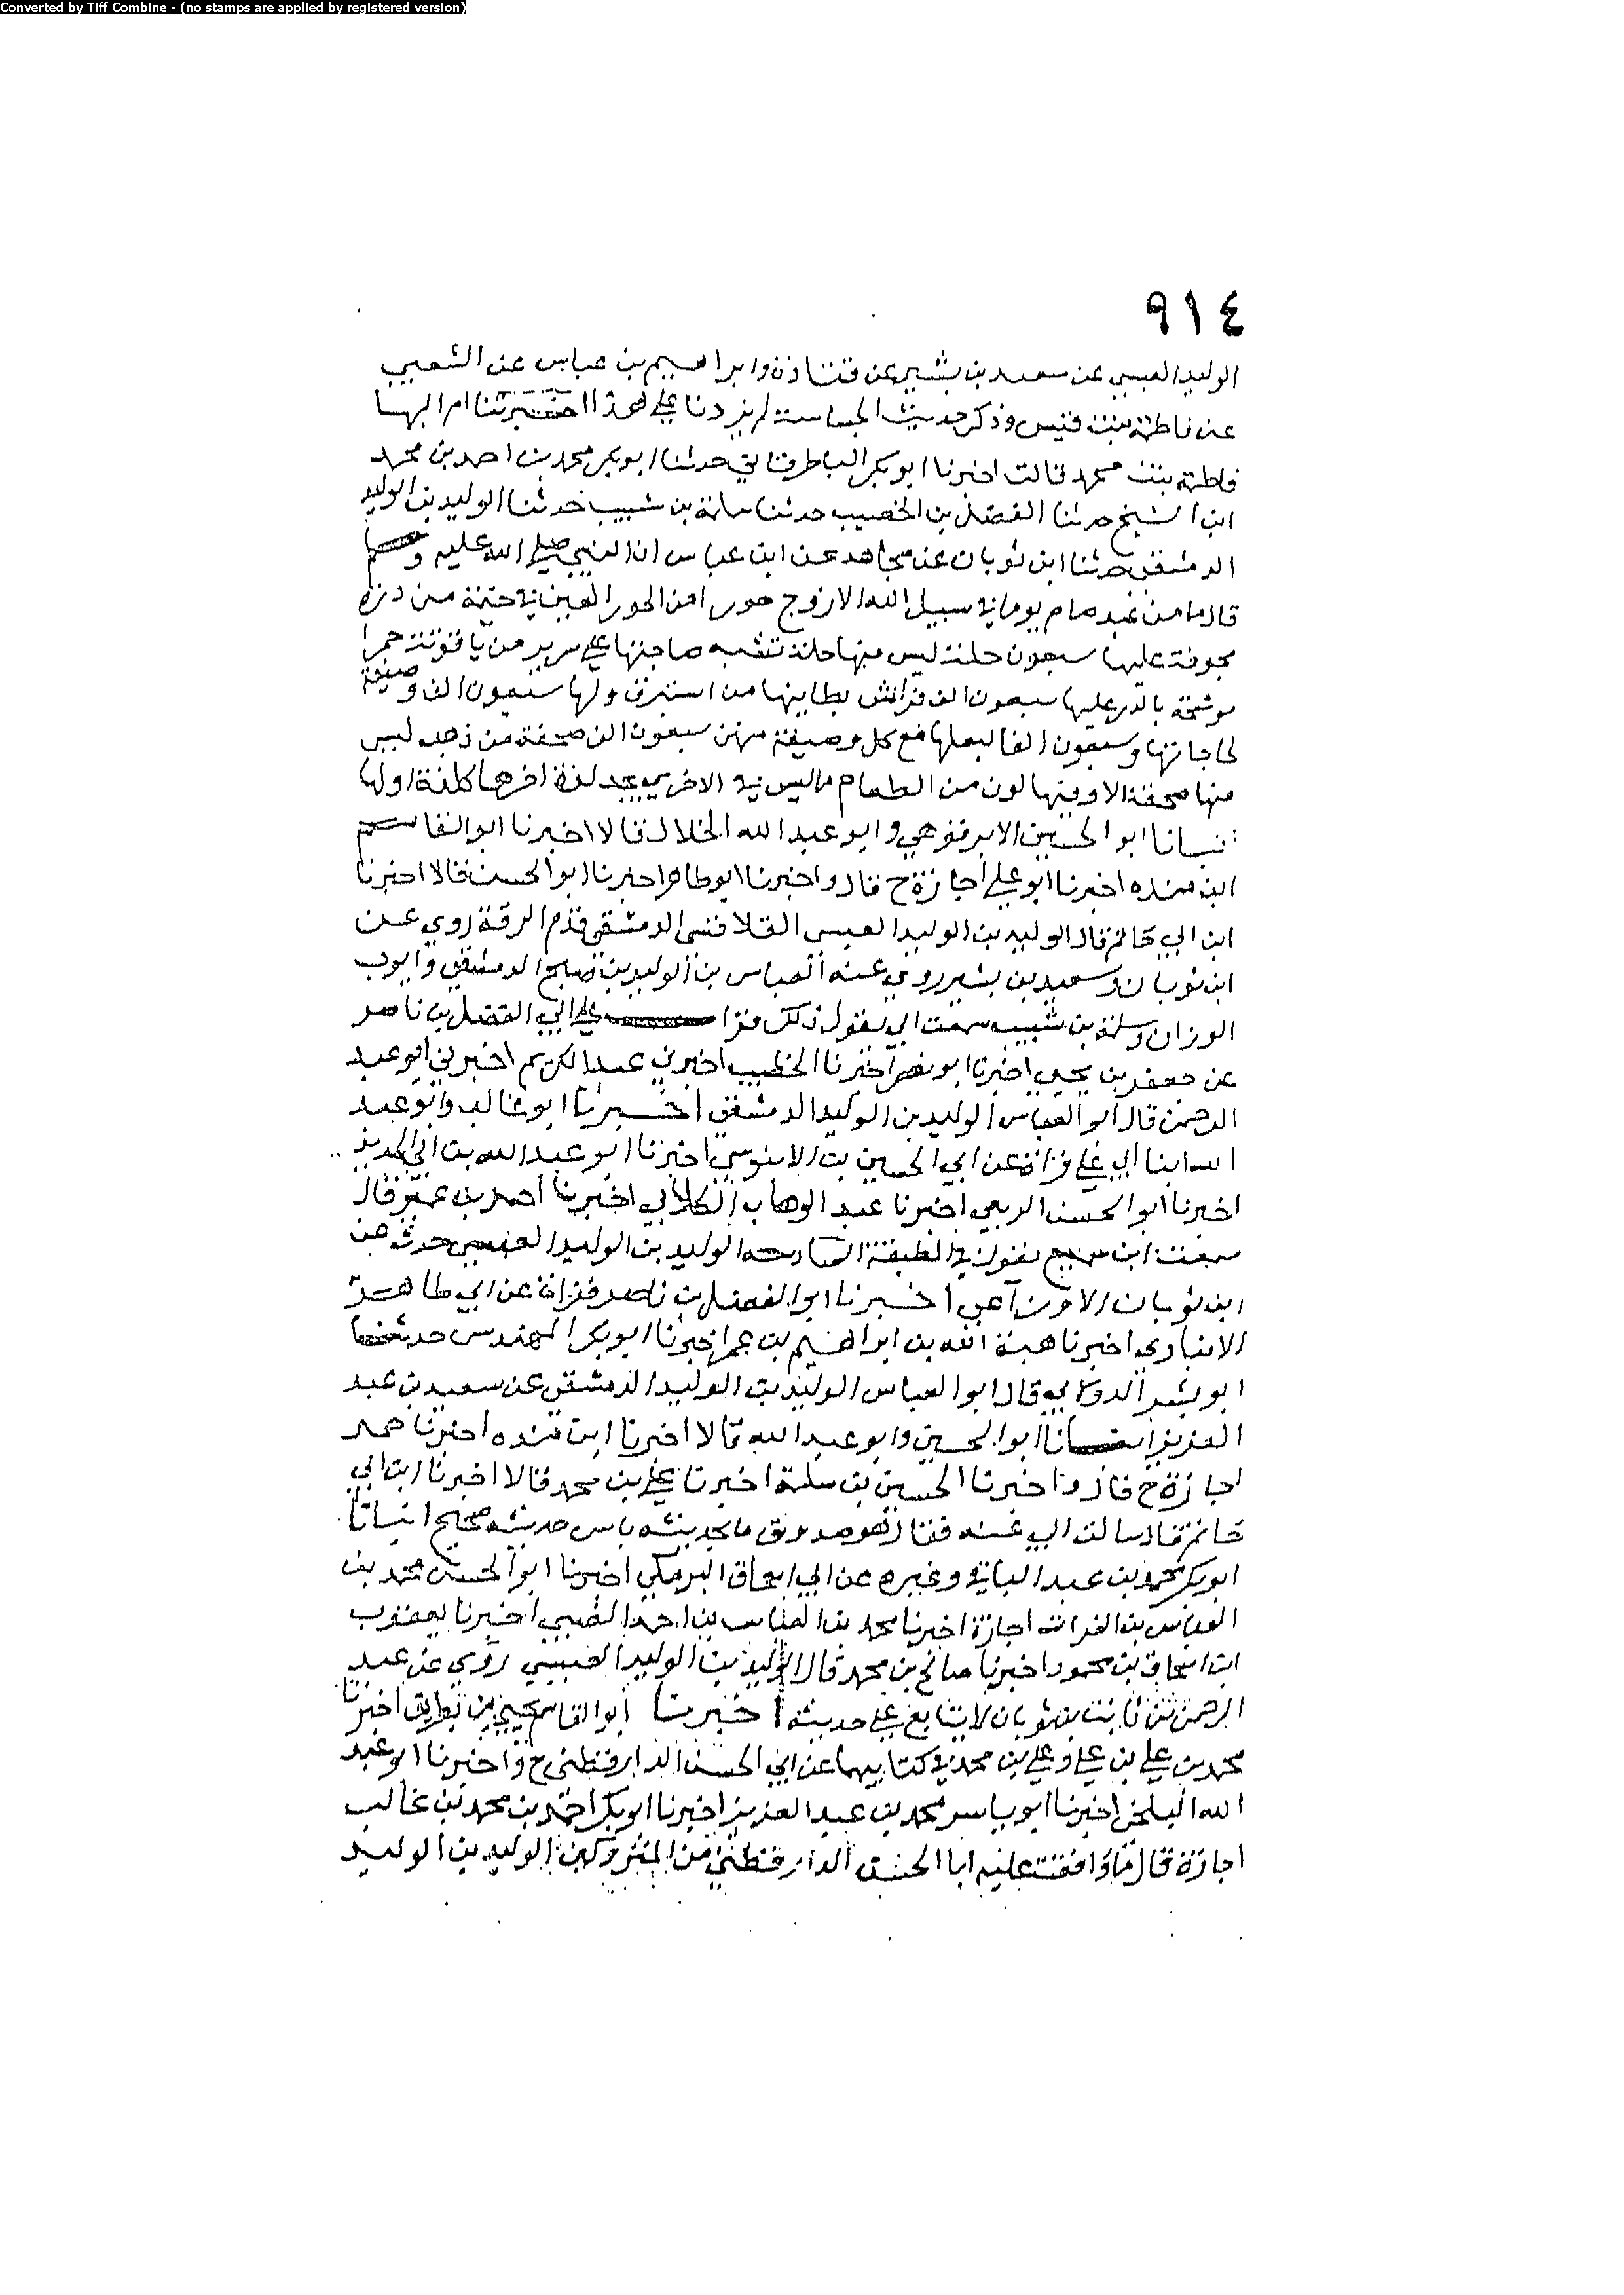 Converted by Tiff Combine - (no stamps are applied by registered version)
٩١٤
الوليد العبسي عن سعيد بن بشير عن قتادة وابراهيم بن عباس عن الشعبي
عن فاطمة بنت قيس وذكر حديث الجساسة لم يزدنا على هذا اخبرتنا ام البها
فاطمة بنت محمد قالت اخبرنا ابو بكر الباطرقاني حدثنا ابو بكر محمد بن احمد بن محمد
ابن الشيخ حدثنا الفضل بن الخصيب حدثنا سلمة بن شبيب حدثنا الوليد بن الوليد
الدمشقي حدثنا ابن ثوبان عن مجاهد عن ابن عباس ان النبي صلى الله عليه وسلم
قال ما من عبد صام يوما في سبيل الله الا زوج حورا من الحور العين في خيمة من درة
مجوفة عليها سبعون حلة ليس منها حلة تشبه صاحبتها على سرير من ياقوتة حمرا
موشحة بالدر عليها سبعون الف فراش بطاينها من استبرق ولها سبعون الف وصيفة
لحاجاتها وسبعون الفا لبعلها مع كل وصيفة منهن سبعون الف صحفة من ذهب ليس
منها صحفة الا وفيها لون من الطعام ما ليس في الاخرى يجد لذة اخرها كلذة اولها
انبانا ابو الحسين الابرقوهي وابو عبد الله الخلال قالا اخبرنا ابو القاسم
ابن منده اخبرنا ابو علي اجازة ح قال واخبرنا ابو طاهر اخبرنا ابو الحسن قالا اخبرنا
ابن ابي حاتم قال الوليد بن الوليد العبسي القلانسي الدمشقي قدم الرقة روى عن
ابن ثوبان وسعيد بن بشير روى عنه العباس بن الوليد بن صبح الدمشقي وايوب
الوزان وسلمة بن شبيب سمعت ابي يقول ذلك قرا على ابي الفضل بن ناصر
عن جعفر بن يحيى اخبرنا ابو نصر اخبرنا الخطيب اخبرني عبد الكريم اخبرني ابو عبد
الرحمن قال ابو العباس الوليد بن الوليد الدمشقي اخبرنا ابو غالب وابو عبد
الله ابنا ابي علي قراة عن ابي الحسين بن الابنوسي اخبرنا ابو عبد الله بن ابي الحديد
اخبرنا ابو الحسن الربعي اخبرنا عبد الوهاب الكلابي اخبرنا احمد بن عمير قال
سمعت ابن سميع يقول في الطبقة السادسة الوليد بن الوليد العبسي حدث عن
ابن ثوبان الاوزاعي اخبرنا ابو الفضل بن ناصر قراة عن ابي طاهر
الانباري اخبرنا هبة الله بن ابراهيم بن عمر اخبرنا ابو بكر المهندس حدثنا
ابو بشر الدولابي قال ابو العباس الوليد بن الوليد الدمشقي عن سعيد بن عبد
العزيز انبانا ابو الحسين وابو عبد الله قالا اخبرنا ابن منده اخبرنا حمد
اجازة ح قال واخبرنا الحسين بن سلمة اخبرنا علي بن محمد قالا اخبرنا ابن ابي
حاتم قال سالت ابي عنه فقال هو صدوق ما بحديثه باس حديثه صحيح انبانا
ابو بكر محمد بن عبد الباقي وغيره عن ابي اسحاق البرمكي اخبرنا ابو الحسن محمد بن
العباس بن الفرات اجازة اخبرنا محمد بن العباس بن احمد الضبي اخبرنا يعقوب
ابن اسحاق بن محمود اخبرنا صالح بن محمد قال الوليد بن الوليد العبسي روى عن عبد
الرحمن بن ثابت بن ثوبان لا يتابع على حديثه اخبرنا ابو القاسم يحيى بن بطريق اخبرنا
محمد بن علي بن علي وعلي بن محمد في كتابيهما عن ابي الحسن الدارقطني ح واخبرنا ابو عبد
الله البلخي اخبرنا ابو ياسر محمد بن عبد العزيز اخبرنا ابو بكر احمد بن محمد بن غالب
اجازة قال ما وافقت عليه ابا الحسن الدارقطني من المتروكين الوليد بن الوليد